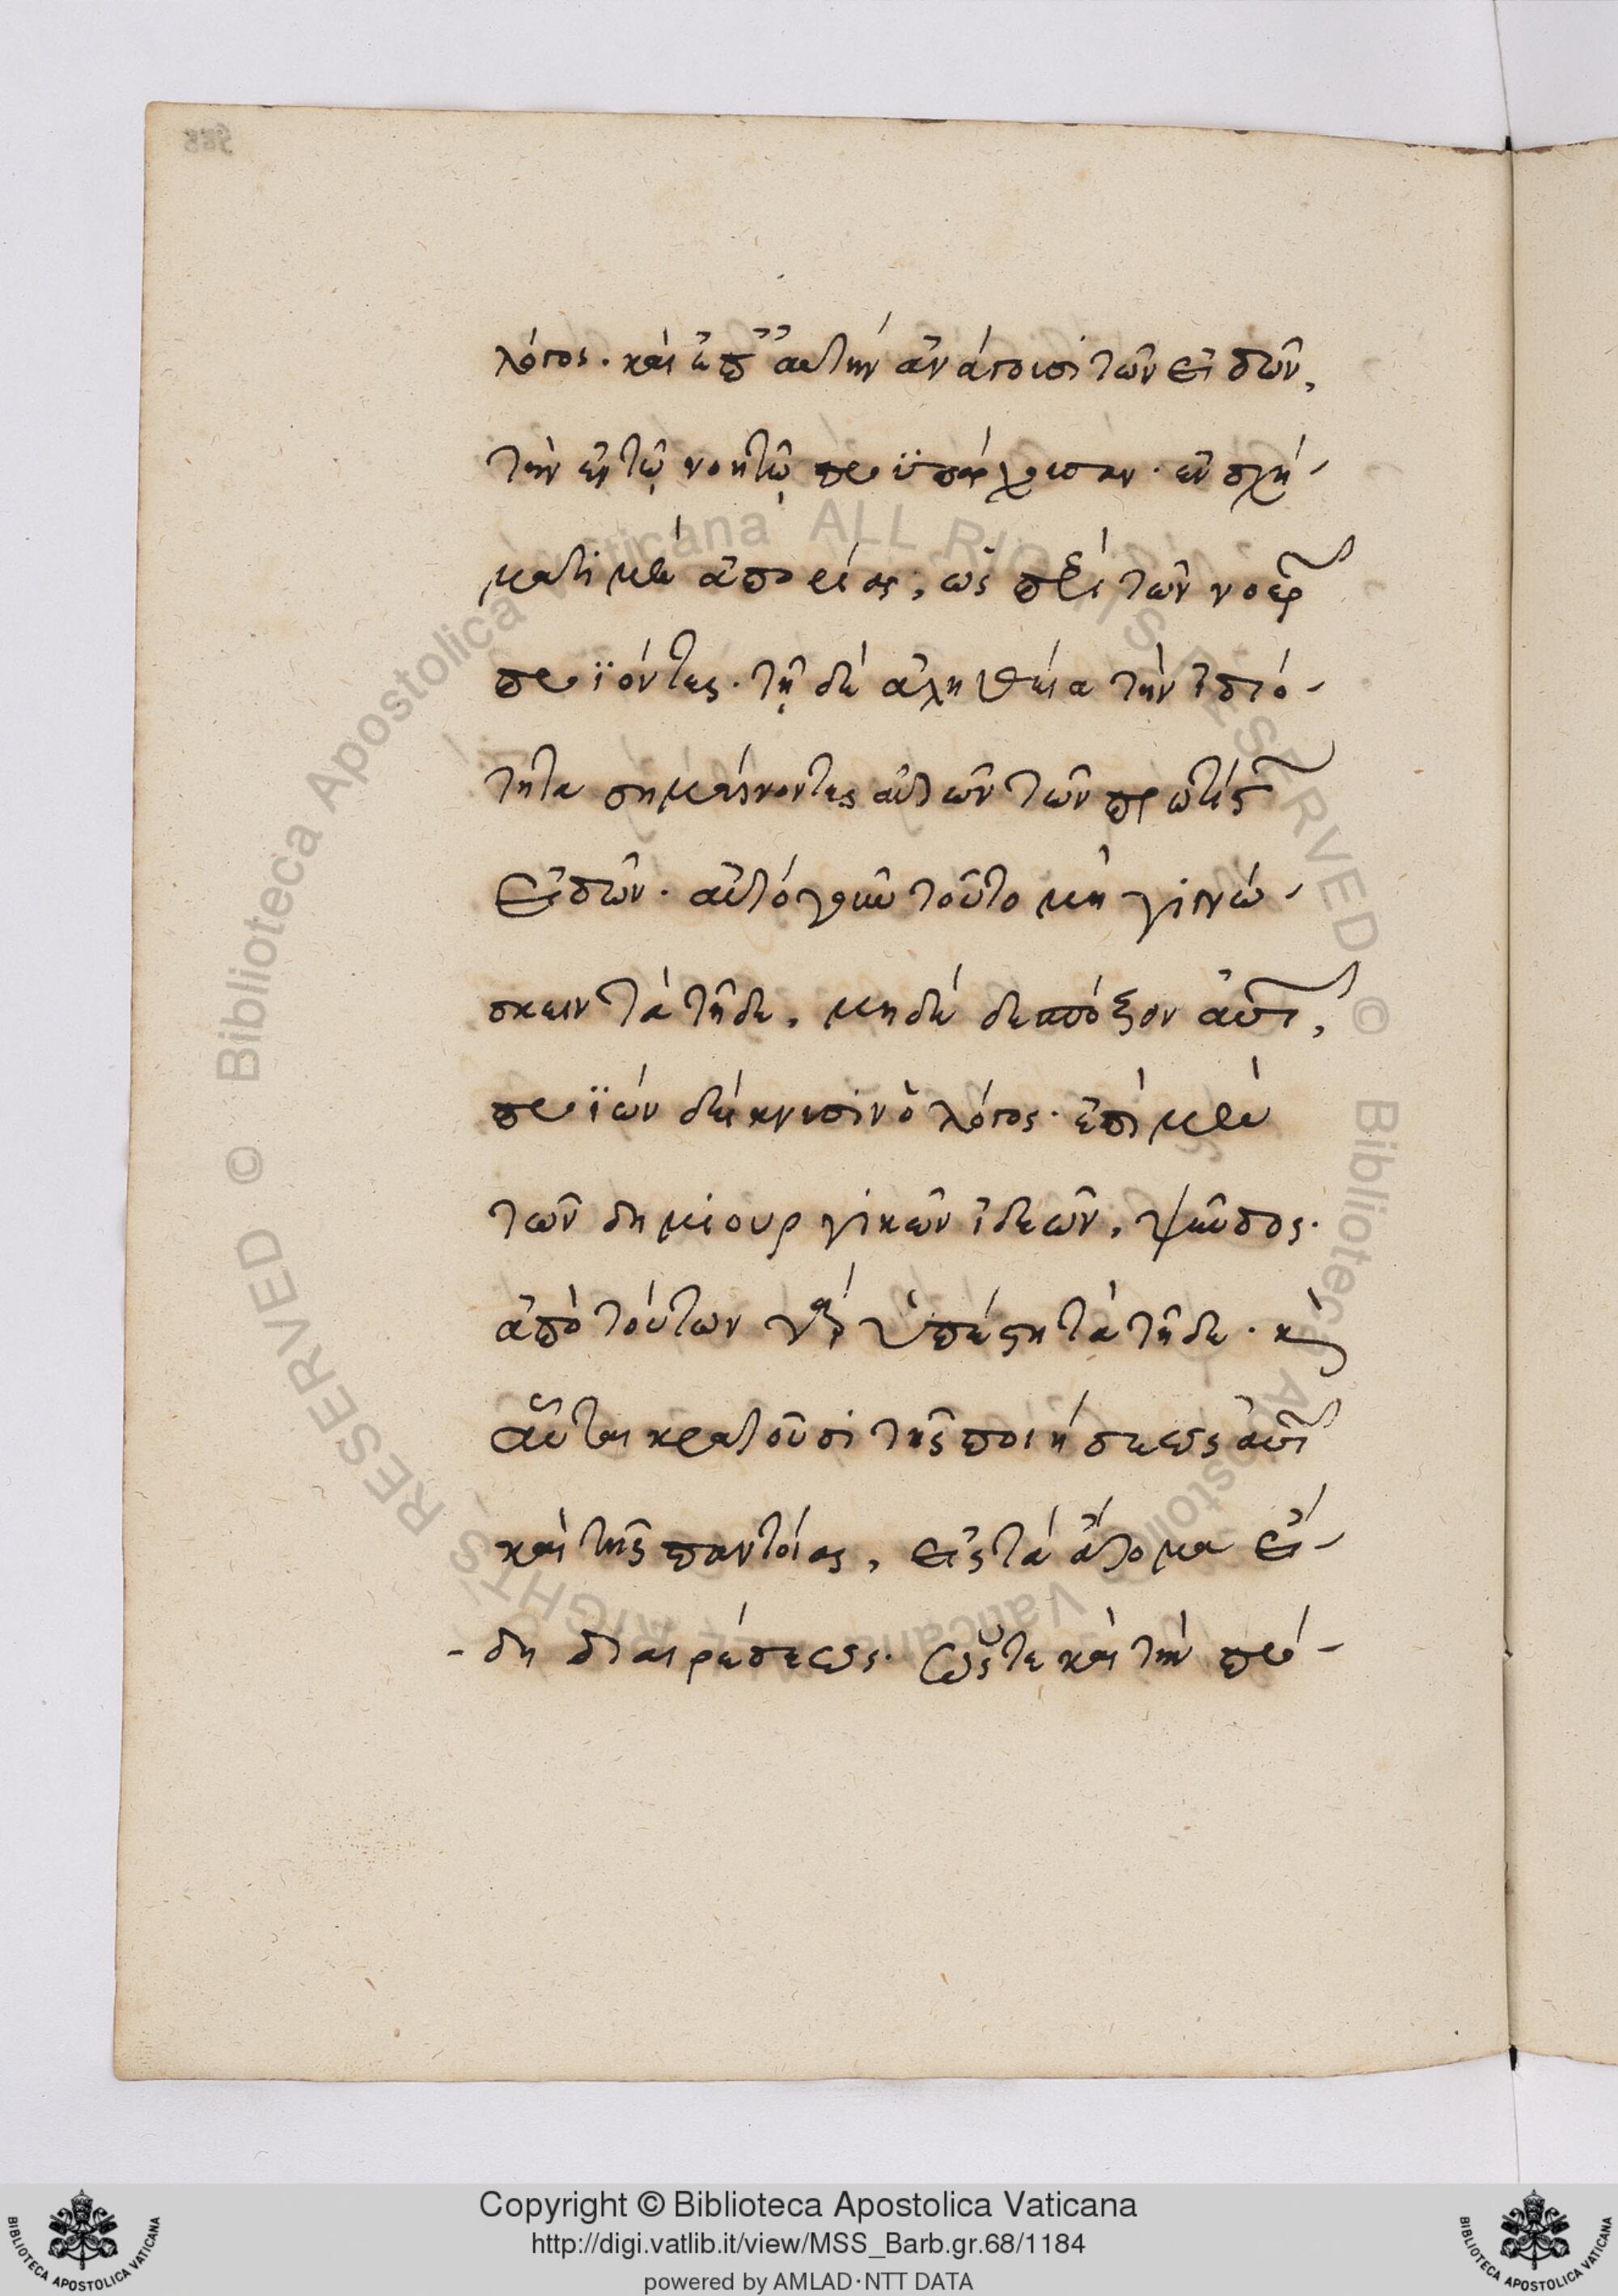 λόγος. καὶ ἐπ' αὐτὴν ἀνάγουσι τῶν εἰδῶν,
τὴν ἐν τῷ νοητῷ προϋπάρχουσαν. ἐν σχή-
ματι μὲν ἀπορίας, ὡς περὶ τῶν νοερῶν
προϊόντες. τῇ δὲ ἀληθείᾳ τὴν ἰδιό-
τητα σημαίνοντες αὐτῶν τῶν πρωτίστων
εἰδῶν. αὐτὸ γοῦν τοῦτο μὴ γινώ-
σκειν τὰ τῇδε, μηδὲ δεσπόζον αὐτῶν,
προϊὼν δείκνυσιν ὁ λόγος. ἐπὶ μὲν
τῶν δημιουργικῶν ἰδεῶν, ψεῦδος.
ἀπὸ τούτων γὰρ ὑπέστη τὰ τῇδε. καὶ
αὗται κρατοῦσι τῆς ποιήσεως αὐτῶν
καὶ τῆς παντοίας, εἰς τὰ ἄτομα εἴ-
-δη διαιρέσεως. ὥστε καὶ τὴν πρό-
© Biblioteca Apostolica Vaticana ALL RIGHTS RESERVED © Biblioteca Apostolica Vaticana ALL RIGHTS RESERVED
Copyright © Biblioteca Apostolica Vaticana
http://digi.vatlib.it/view/MSS_Barb.gr.68/1184
powered by AMLAD·NTT DATA
BIBLIOTECA APOSTOLICA VATICANA
BIBLIOTECA APOSTOLICA VATICANA